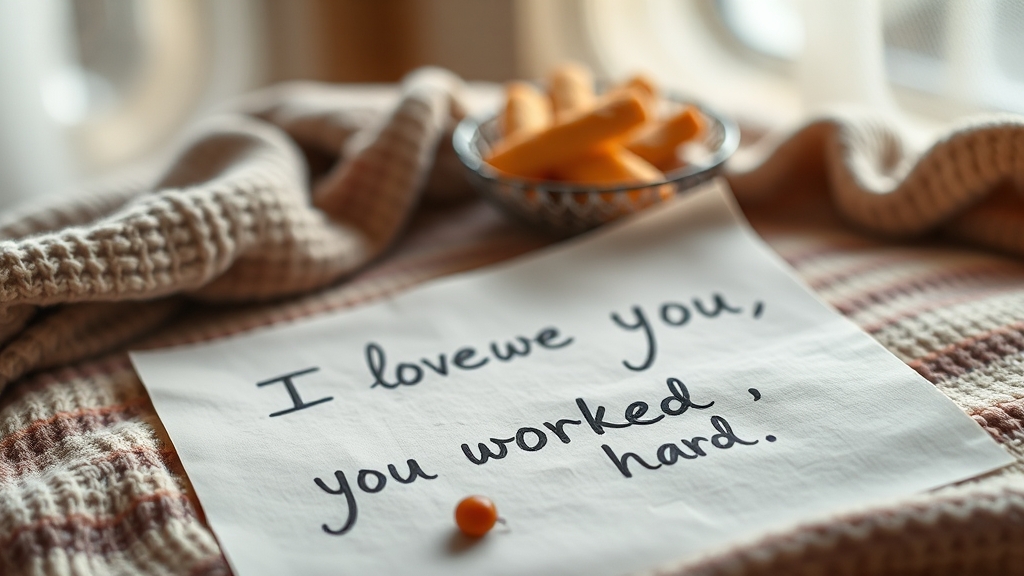 I lovewe you,
you worked,
hard.